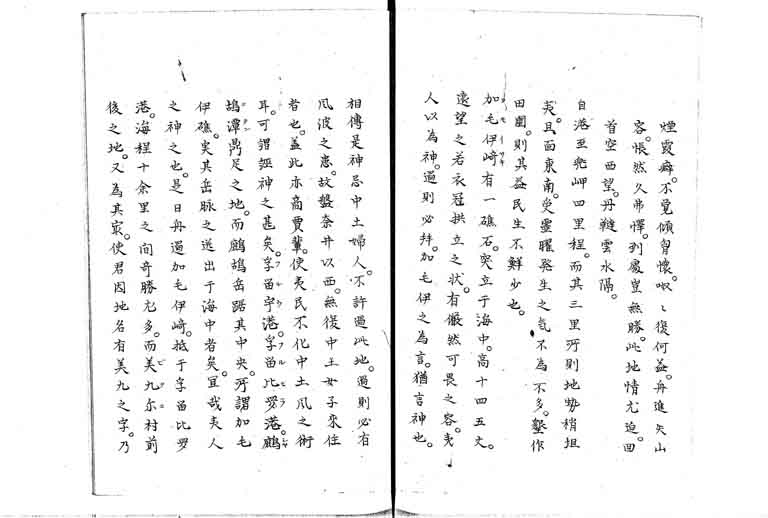 煙霞癖。不覚傾胷懐。呶〻復何益。舟進矢山
容。悵然久弗懌。到處豈無勝。此地情尤迫。回
首空西望。丹䡵雲水隔。
自港至兜岬四里程。而其三里所則地勢稍坦
夷。且面東南。受靈曜発生之気不為不多。墾作
田圃。則其益民生不鮮少也。
加毛伊崎有一礁石。突立于海中。高十四五丈。
遠望之若衣冠拱立之状。有儼然可畏之容。夷
人以為神。過則必拜。加毛伊之為言。猶言神也。
相傳是神忌中土婦人。不許過此地。過則必有
風波之患。故盤奈井以西。無復中土女子来住
者也。蓋此亦商賈輩。使夷民不化中土風之術
耳。可謂誣神之甚矣。孚畄宇港。孚畄比羅港。鸕
鴣潭鼎足之地。而鸕鴣岳踞其中央。所謂加毛
伊礁。実其岳脉之送出于海中者矣。宜哉夷人
之神之也。是日舟過加毛伊崎。抵于孚畄比羅
港。海程十余里之间奇勝尤多。而美九尓村前
後之地。又為其最。使君因地名有美九之字。乃